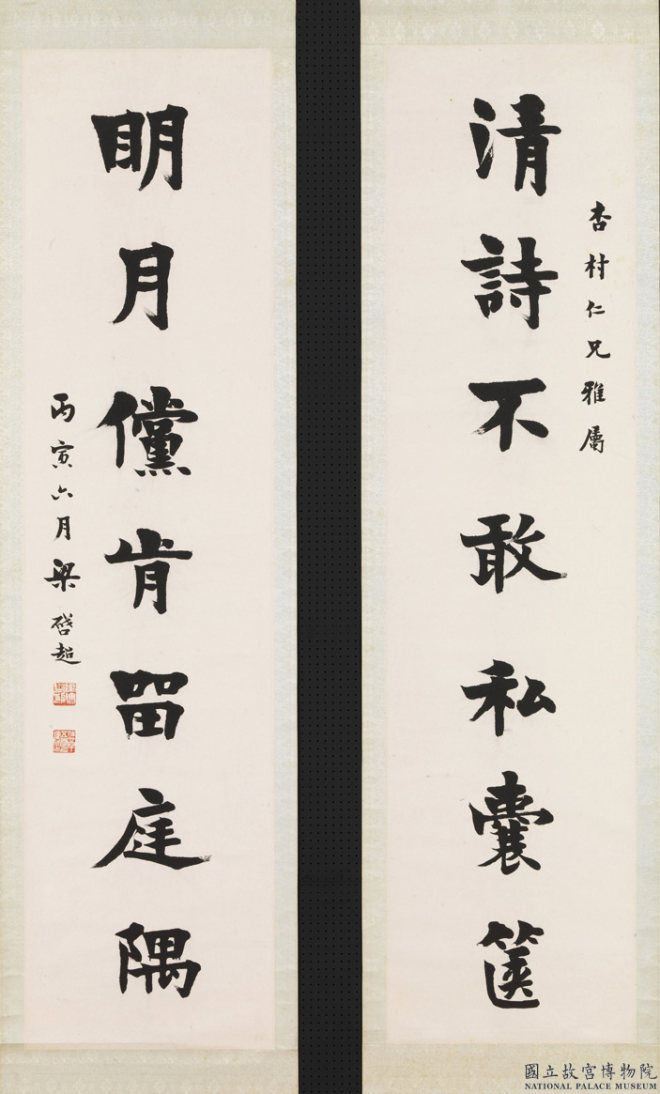 杏村仁兄雅屬
清詩不敢私囊篋
明月儻肯留庭隅
丙寅六月梁啓超
國立故宮博物院
NATIONAL PALACE MUSEUM